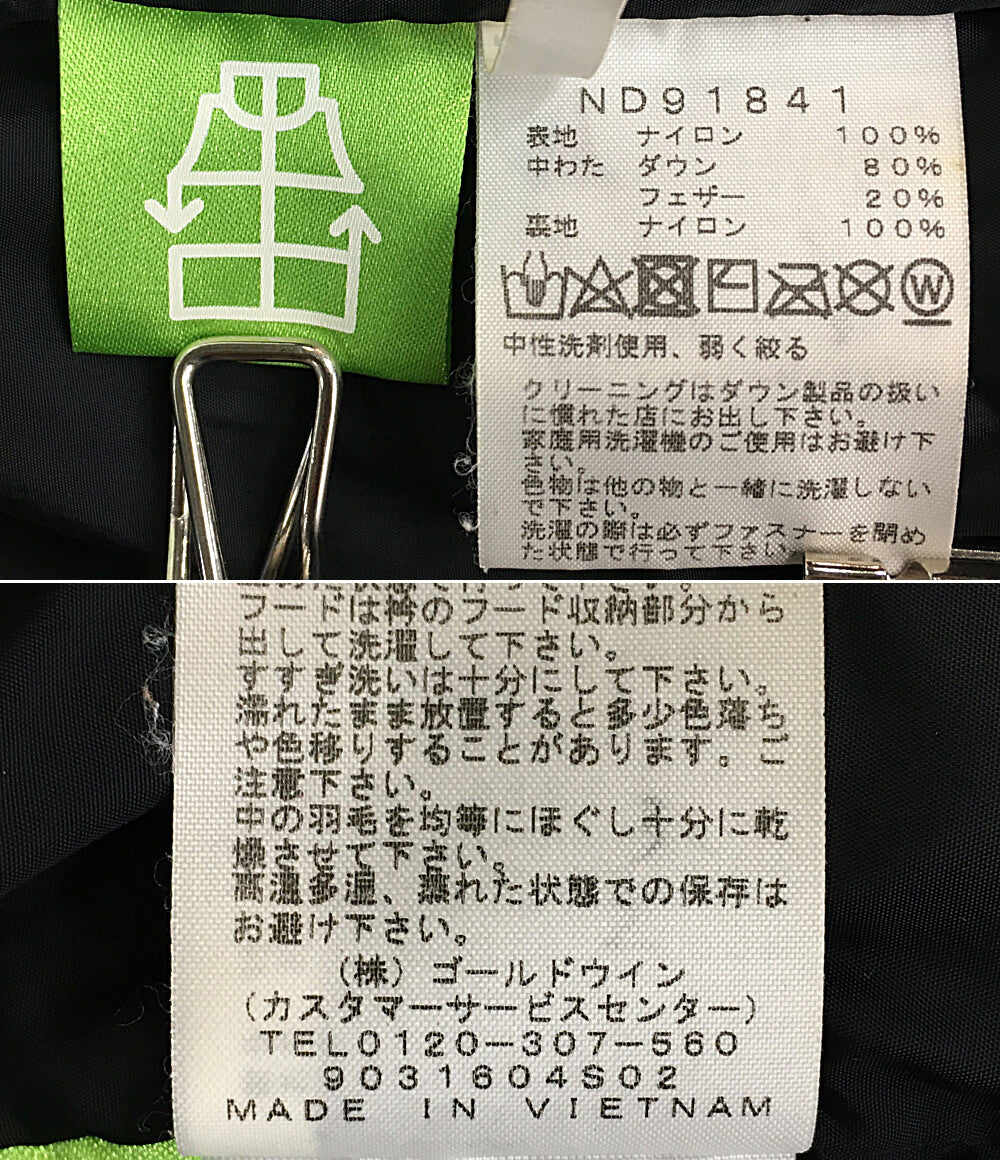 ND91841
表地 ナイロン 100%
中わた ダウン 80%
フェザー 20%
裏地 ナイロン 100%
W
中性洗剤使用、弱く絞る
クリーニングはダウン製品の扱い
に慣れた店にお出し下さい。
家庭用洗濯機のご使用はお避け下
さい。
色物は他の物と一緒に洗濯しない
で下さい。
洗濯の際は必ずファスナーを閉め
た状態で行って下さい
フードは衿のフード収納部分から
出して洗濯して下さい。
すすぎ洗いは十分にして下さい。
濡れたまま放置すると多少色落ち
や色移りすることがあります。ご
注意下さい。
中の羽毛を均等にほぐし十分に乾
燥させて下さい。
高温多湿、蒸れた状態での保存は
お避け下さい。
(株)ゴールドウイン
(カスタマーサービスセンター)
TEL0120-307-560
9031604S02
MADE IN VIETNAM